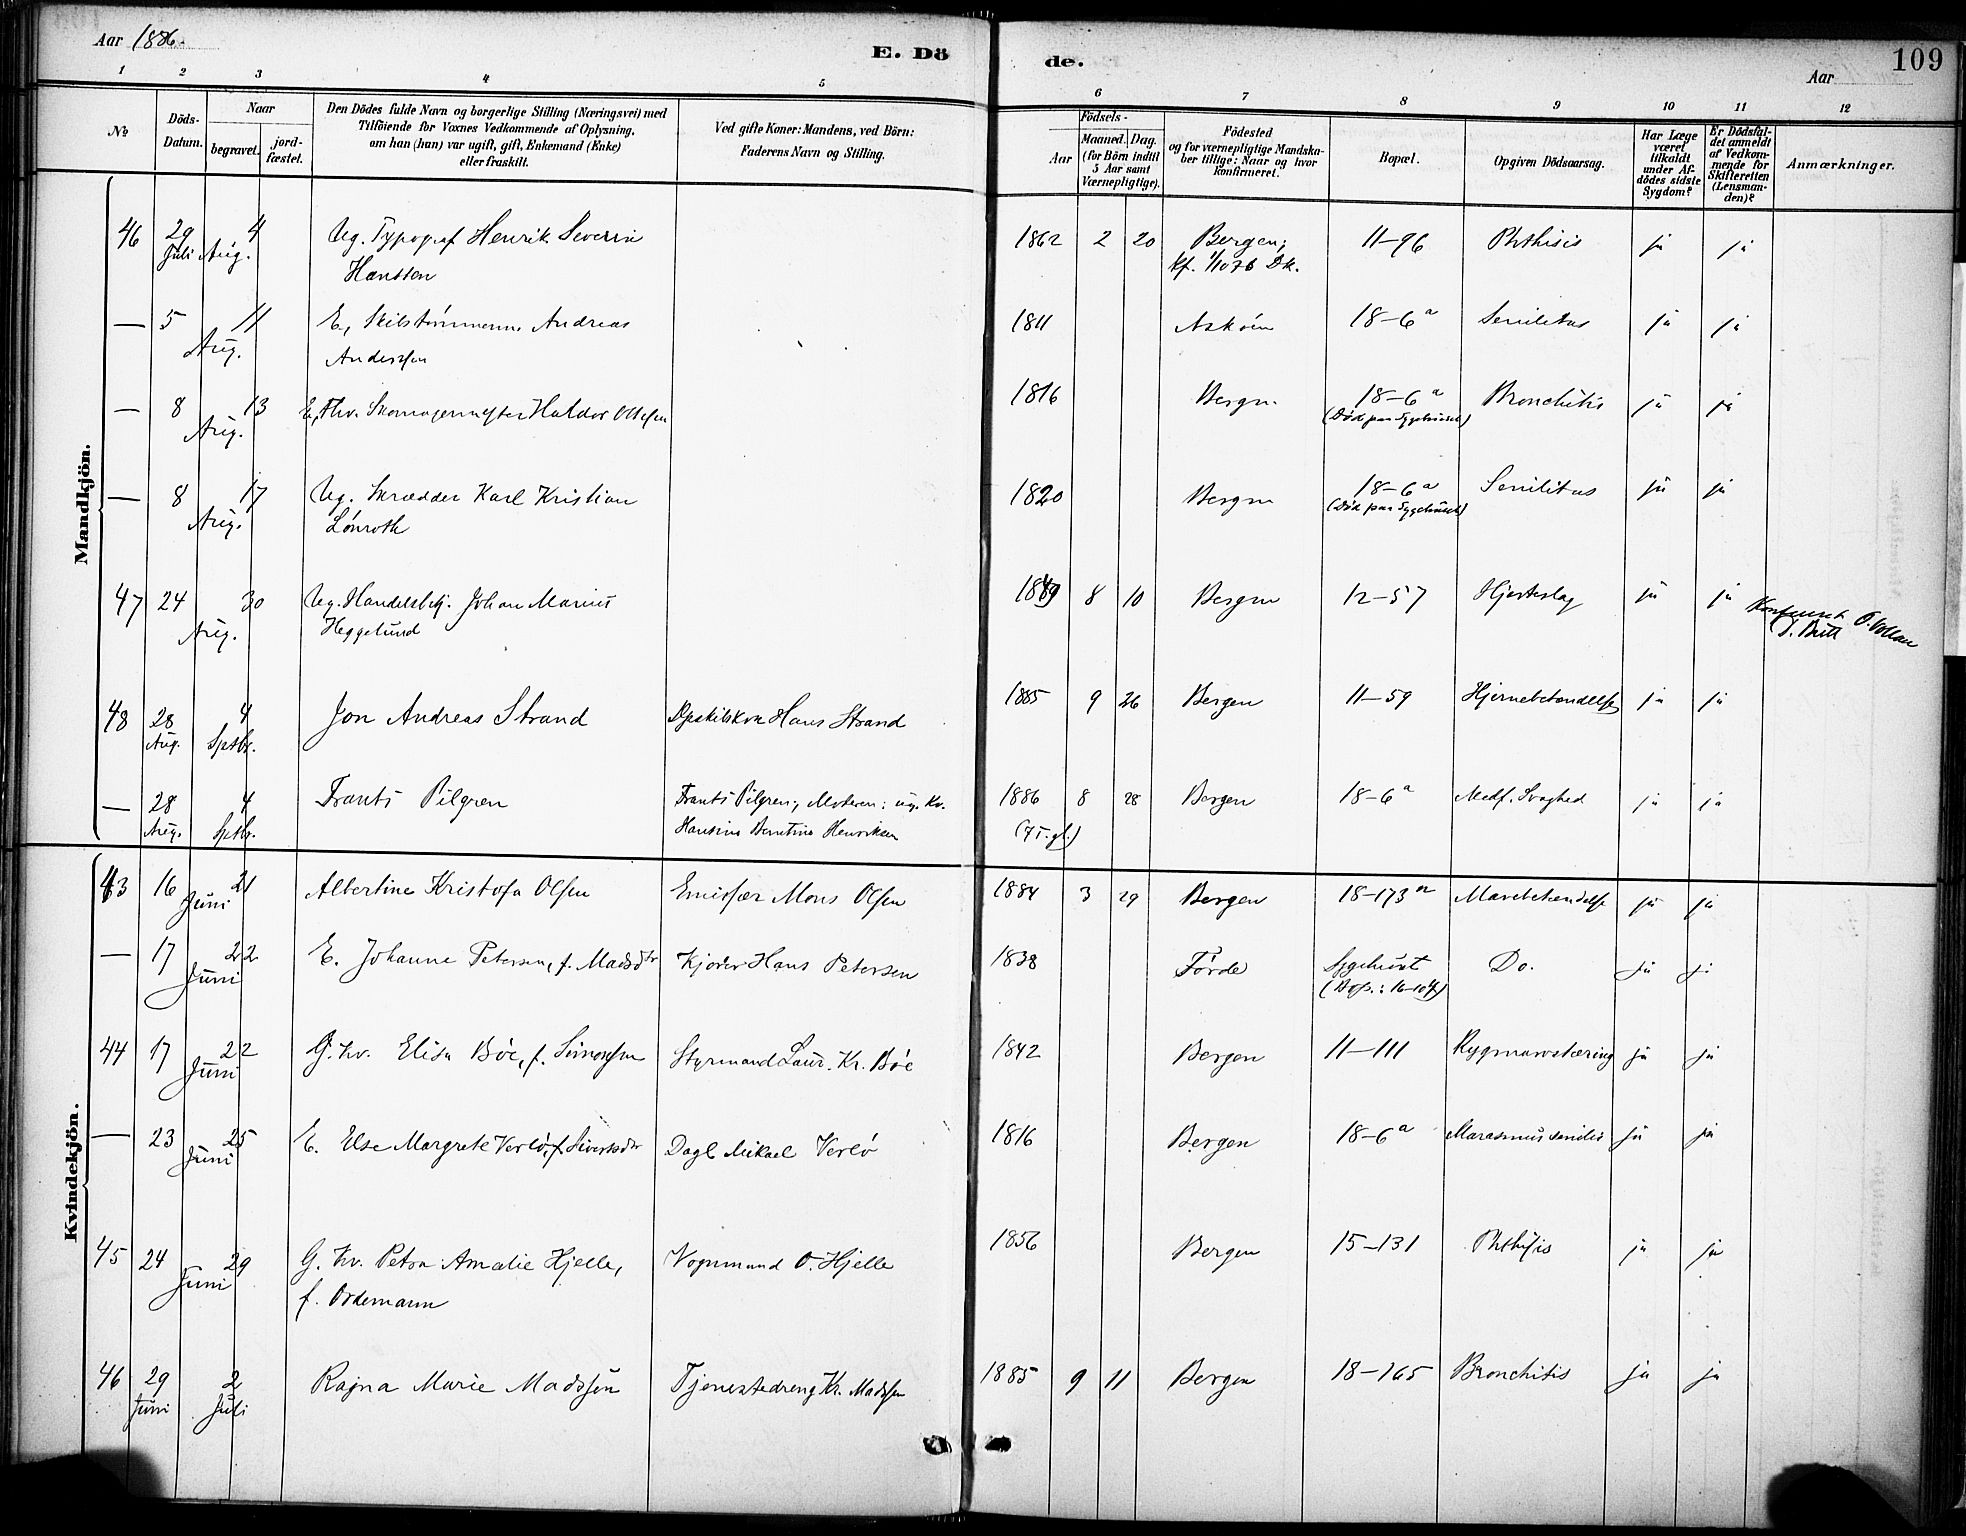 Aar 1886.
E. Dö
de.
Aar
109
1 2 3 4 5 6 7 8 9 10 11 12
No
Döds-
Datum.
Naar
begravet.
jord-
fæstet.
Den Dödes fulde Navn og borgerlige Stilling (Næringsvei) med
Tilföiende for Voxnes Vedkommende af Oplysning,
om han (hun) var ugift, gift, Enkemand (Enke)
eller fraskilt.
Ved gifte Koner: Mandens, ved Börn:
Faderens Navn og Stilling.
Födsels-
Aar
Maaned. Dag.
(for Börn indtil
5 Aar samt
Værnepligtige).
Födested
og for værnepligtige Mandska-
ber tillige: Naar og hvor
konfirmeret.
Bopæl.
Opgiven Dödsaarsag.
Har Læge
været
tilkaldt
under Af-
dödes sidste
Sygdom?
Er Dödsfal-
det anmeldt
af Vedkom-
mende for
Skifteretten
(Lensman-
den)?
Anmærkninger.
Mandkjön.
46 29 Juli 4 Aug. Ug. Typograf Henrik Severin
Hansten
1862 2 20 Bergen; 11-96 Phthisis ja ja
kf. 1/10 76 Dk.
— 5 11 Aug. E, Skibstømmerm. Andreas
Anderssen
1811 Askøen 18-6a Senilitas ja ja
— 8 13 Aug. E, Fhv. Skomagermester Haldor Ottesen
1816 Bergen 18-6a Bronchitis ja ja
(Død paa Sygehuset)
— 8 17 Aug. Ug. Skrædder Karl Kristian
Lønroth
1820 Bergen 18-6a Senilitas ja ja
(Død paa Sygehuset)
47 24 30 Aug. Ug. Handelsbetj. Johan Marius
Heggelund
1849 8 10 Bergen 12-57 Hjerteslag ja ja
48 28 Aug. 4 Sptbr. Jon Andreas Strand Hans Strand
1885 9 26 Bergen 11-59 Hjernebetændelse ja ja
— 28 Aug. 4 Sptbr. Frants Pilgren Frants Pilgren, Moderen: ug. Kv.
Hansine Berntine Henriksen
1886 8 28 Bergen 18-6a Medf. Svaghed ja ja
(7 T. gl.)
Kvindekjön.
43 16 21 Juni Albertine Kristofa Olsen Emissær Mons Olsen
1884 3 29 Bergen 18-173a Mavebetændelse ja ja
— 17 22 Juni E. Johanne Petersen, f. Madsdtr Kjører Hans Petersen
1838 Førde Sygehuset Do. ja ja
44 17 22 Juni G. Kv. Elisa Bøe, f. Simonsen Styrmand Laur. Kr. Bøe
1842 Bergen 11-111 Rygmarvstæring ja ja
— 23 25 Juni E. Else Margrete Verlø, f. Sivertsdtr Dagl. Mikael Verlø
1816 Bergen 18-6a Marasmus senilis ja ja
45 24 29 Juni G. Kv. Petra Amalie Hjelle, Vognmand O. Hjelle
f. Ordemann
1856 Bergen 15-131 Phthisis ja ja
46 29 Juni 2 Juli Ragna Marie Madssen Tjenestedreng Kr. Madssen
1885 9 11 Bergen 18-165 Bronchitis ja ja